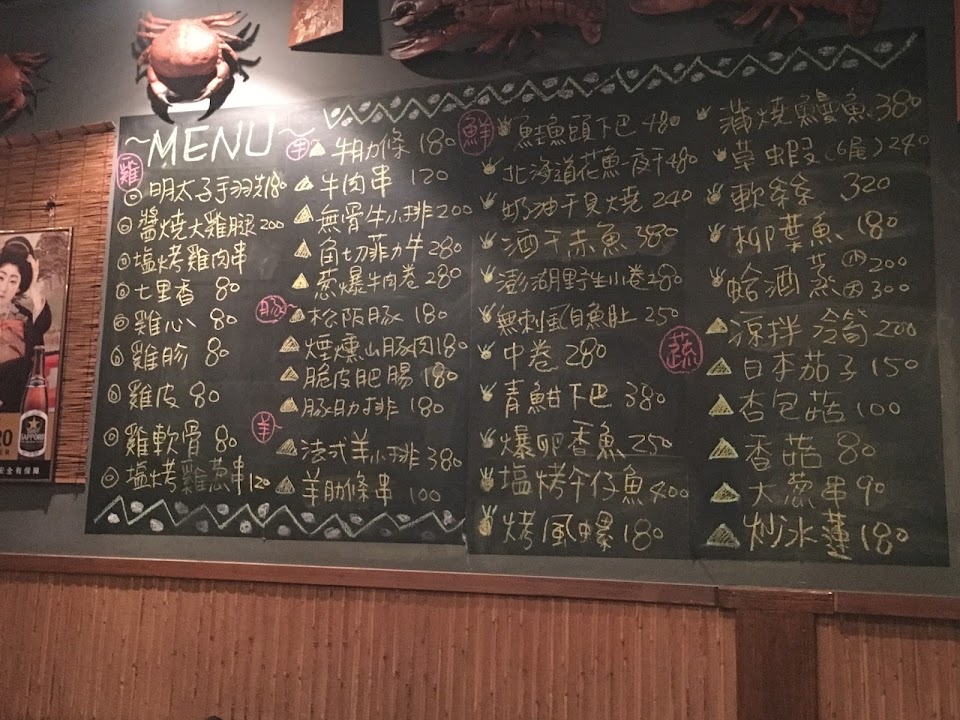 ~MENU~
雞
明太子手羽先180
醬燒大雞腿200
塩烤雞肉串
七里香 80
雞心 80
雞胗 80
雞皮 80
雞軟骨 80
塩烤雞蔥串120
牛
牛肋條 180
牛肉串 120
無骨牛小排200
角切菲力牛 280
葱爆牛肉卷 280
豚
松阪豚 180
煙燻山豚肉180
脆皮肥腸 180
豚肋排 180
羊
法式羊小排 380
羊肋條串 100
鮮
鮭魚頭下巴 480
北海道花魚一夜干480
奶油干貝燒 240
酒干赤魚 380
澎湖野生小卷280
無刺虱目魚肚 250
中卷 280
青魽下巴 380
爆卵香魚 250
塩烤午仔魚 400
烤風螺 180
蒲燒鰻魚 380
草蝦(6尾)240
軟絲 320
柳葉魚 180
蛤酒蒸 小200
大300
蔬
涼拌冷筍200
日本茄子 150
杏包菇 100
香菇 80
大葱串 90
炒水蓮 180
SAPPORO
安全有保障